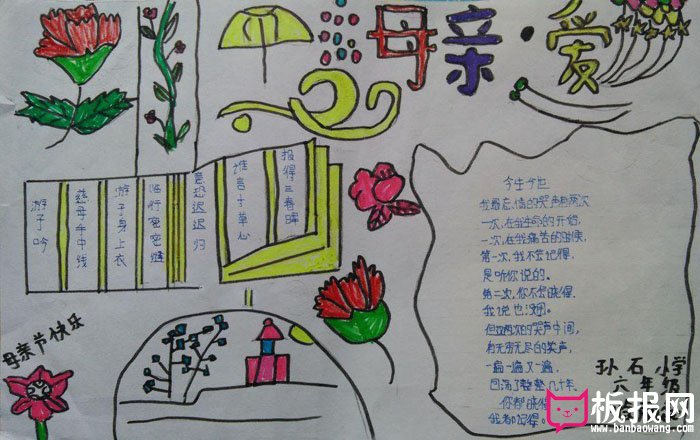 母亲·爱
游子吟
慈母手中线
游子身上衣
临行密密缝
意恐迟迟归
谁言寸草心
报得三春晖
今生今世
我最忘情的哭声有两次
一次,在我生命的开始,
一次,在我痛苦的时候,
第一次,我不会记得,
是听你说的。
第二次,你不会晓得,
我说也没用。
但这两次的哭声中间,
有无穷无尽的笑声,
一遍一遍又一遍,
回荡了整整几十年,
你都晓得
我都记得。
母亲节快乐
孙石小学
六年级
板报网
www.banbaowang.com